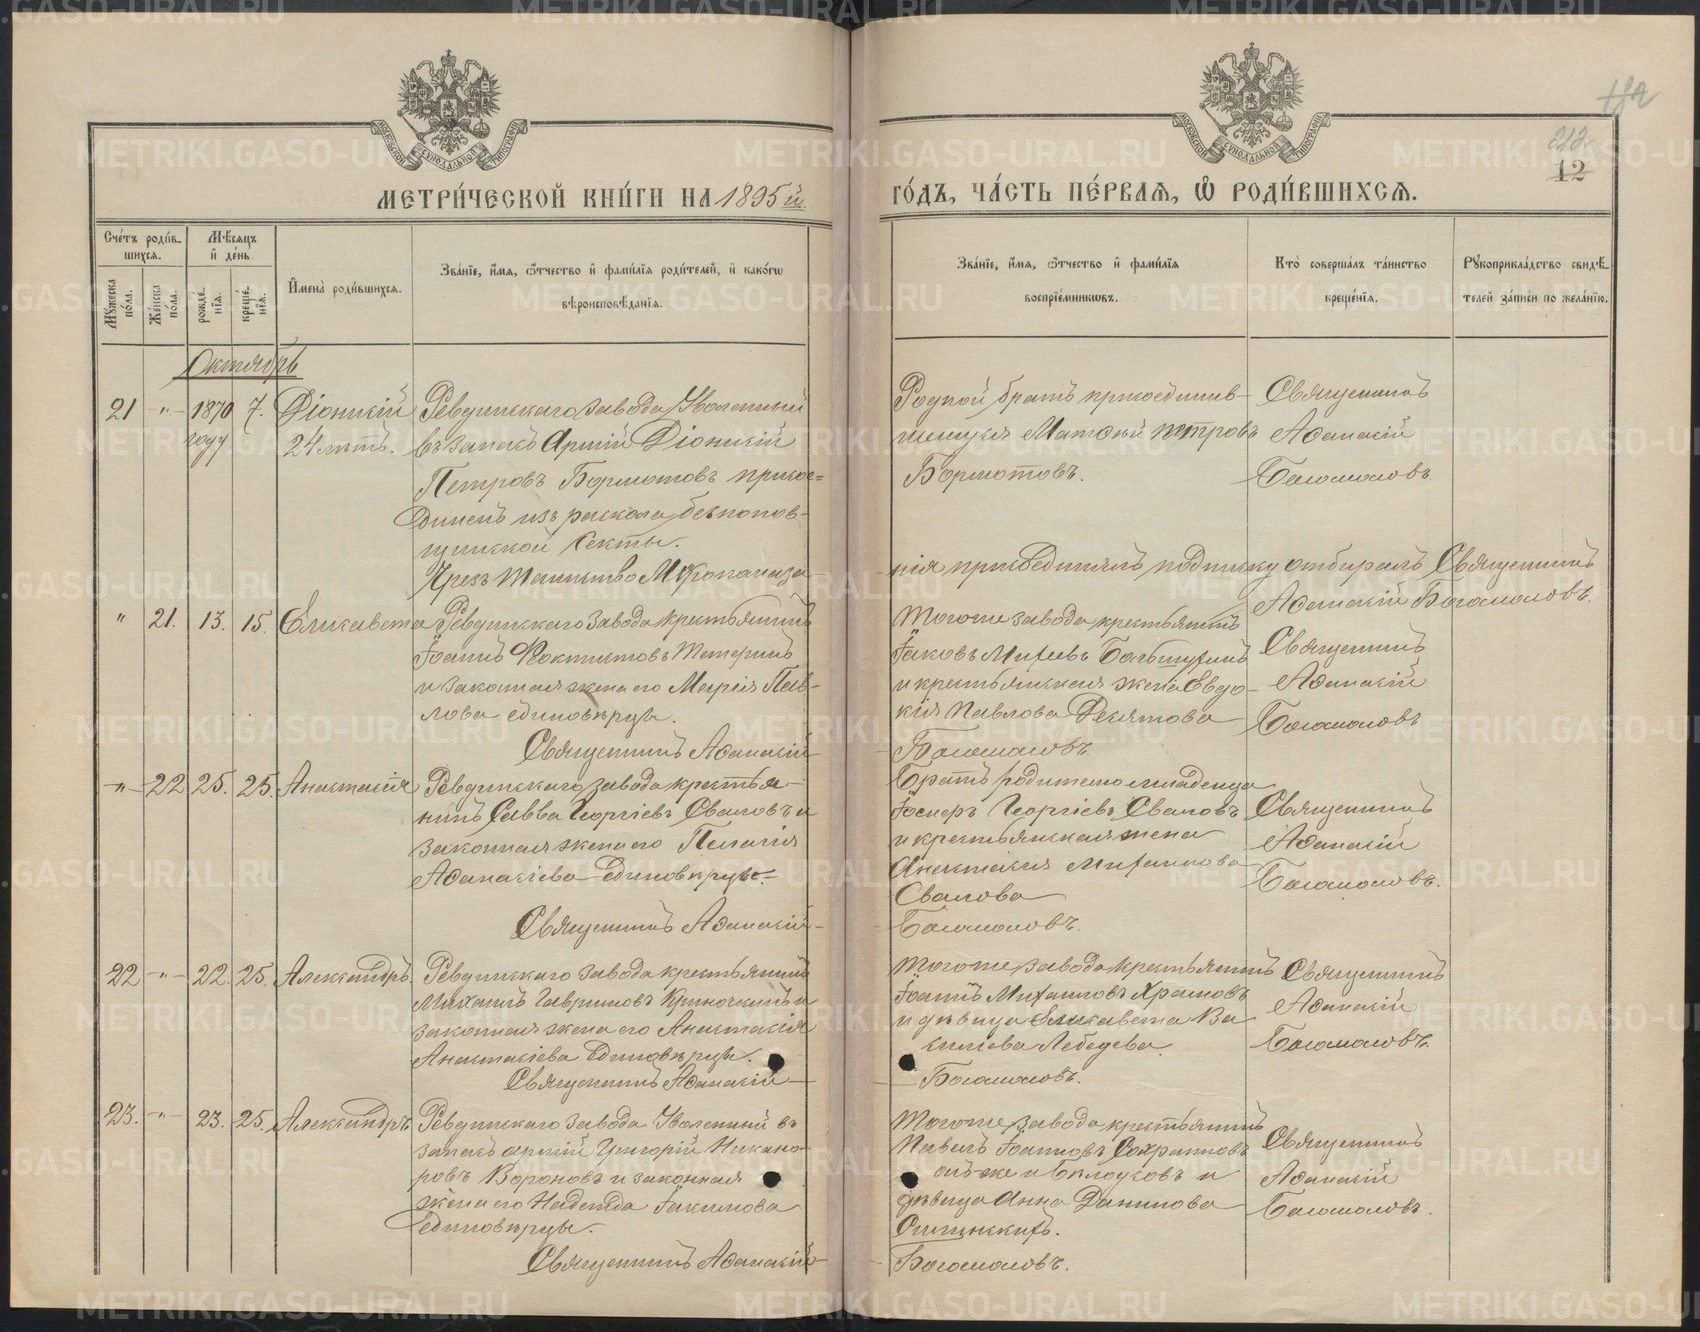 МЕТРИ́ЧЕСКОЙ КНИ́ГИ НА 1895й.
ГО́ДЪ, ЧА́СТЬ ПЕ́РВАѦ, Ѡ҆ РОДИ́ВШИХСѦ.
12
Сче́тъ роди́в-
шихсѧ.
Мꙋ́жеска по́ла.
Же́нска по́ла.
Мѣ́сѧцъ и҆ де́нь
рожде́нїѧ.
креще́нїѧ.
И҆мена̀ роди́вшихсѧ.
Зва́нїе, и҆́мѧ, ѻ҆́тчество и҆ фами́лїѧ роди́телей, и҆ како́гѡ
вѣроисповѣ́данїѧ.
Зва́нїе, и҆́мѧ, ѻ҆́тчество и҆ фами́лїѧ
воспрїе́мникѡвъ.
Кто̀ соверша́лъ та́инство
креще́нїѧ.
Рꙋкоприкла́дство свидѣ́-
телей за́писи по жела́нїю.
Октябрь
21 -"- 1870 году 7. Діонисій
24 лѣтъ.
Ревдинскаго завода Уволенный
въ запасъ Арміи Діонисій
Петровъ Бормотовъ присое=
диненъ изъ раскола безпопов-
щинской секты.
Чрезъ таинство Мѵропомаза-
Родной братъ присоединив-
шемуся Матѳей Петровъ
Бормотовъ.
Священникъ
Аѳанасій
Богомоловъ
нія присоединялъ и подписку отбиралъ Священникъ
Аѳанасій Богомоловъ.
" 21. 13. 15. Елисавета
Ревдинскаго завода крестьянинъ
Іоаннъ Ѳеоктистовъ Тетеринъ
и законная жена его Марія Пав-
лова единовѣрцы.
Священникъ Аѳанасій
Тогоже завода крестьянинъ
Іаковъ Михеевъ
и крестьянская жена Евдо-
кія Павлова Десятова
Богомоловъ
Священникъ
Аѳанасій
Богомоловъ
-"- 22 25. 25. Анастасія
Ревдинскаго завода крестья-
нинъ Савва Георгіевъ Сваловъ и
законная жена его Пелагія
Аѳанасіева Единовѣрцы.
Священникъ Аѳанасій-
Братъ родителю младенца
Іосифъ Георгіевъ Сваловъ
и крестьянская жена
Анастасія Михаилова
Свалова
Богомоловъ.
Священникъ
Аѳанасій
Богомоловъ.
22 -"- 22. 25. Александръ.
Ревдинскаго завода крестьянинъ
Михаилъ Гавриловъ и
законная жена его Анастасія
Анастасіева Единовѣрцы.
Священникъ Аѳанасій
Тогоже завода крестьянинъ
Іоаннъ Михаиловъ Храмовъ
и дѣвица Елисавета Ва
силиева Лебедева
Богомоловъ.
Священникъ
Аѳанасій
Богомоловъ.
23. -"- 23. 25. Александръ
Ревдинскаго завода Уволенный въ
запасъ арміи Григорій Никано-
ровъ Вороновъ и законная
жена его Надежда Іакимова
Единовѣрцы.
Священникъ Аѳанасій-
Тогоже завода крестьянинъ
Павелъ Іоанновъ
онъ же и Бѣлоусовъ и
дѣвица Анна Данилова
Богомоловъ.
Священникъ
Аѳанасій
Богомоловъ.
METRIKI.GASO-URAL.RU